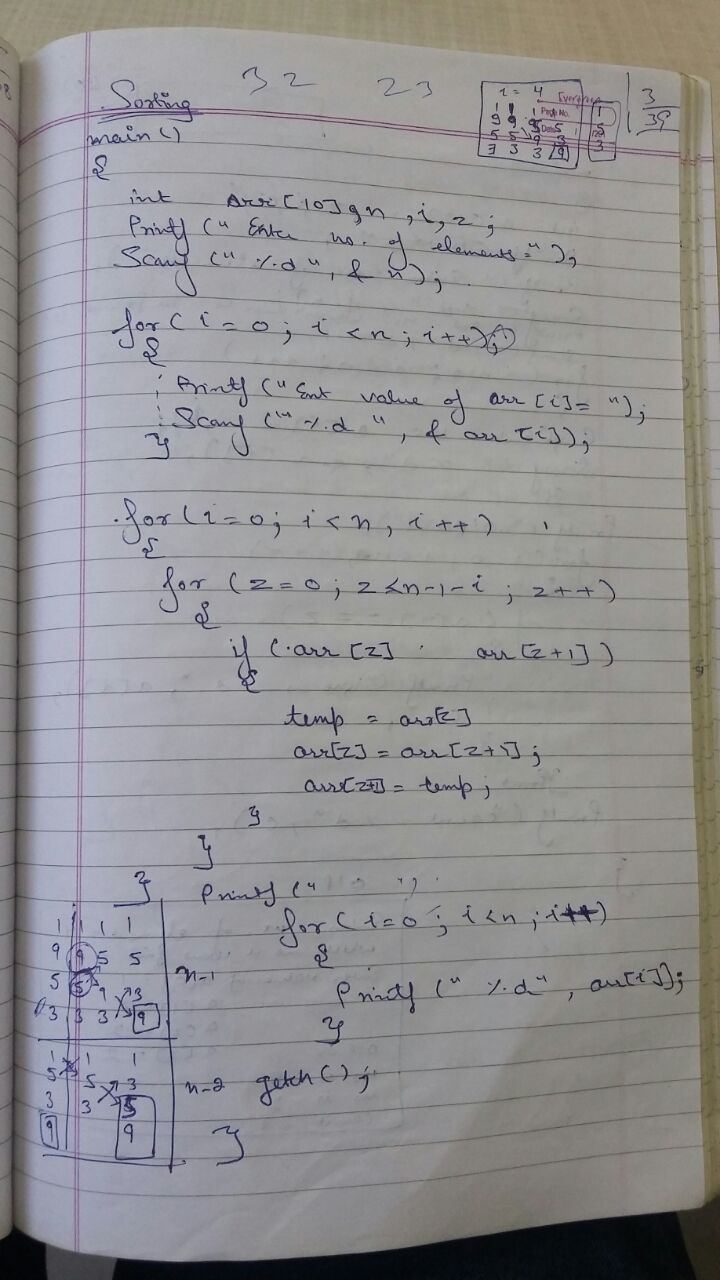 32 23
3
39
i = 4
1 1 1
9 9 5 5
5 5 9 3
3 3 3 9
1
5
3
Page No.
Date
Sorting
main ()
{
int arr [10], n , i, z ;
Printf (" Enter no. of elements = " );
Scanf (" %d ", & n );
for( i = 0 ; i < n ; i++);
{
Printf (" Ent value of arr [i] = ");
Scanf (" %d ", & arr [i]);
}
for( i = 0; i < n , i ++ )
{
for ( z = 0 ; z < n-1-i ; z++ )
{
if ( arr [z] arr [z+1] )
{
temp = arr[z]
arr[z] = arr [z+1] ;
arr[z+1] = temp ;
}
}
}
Printf (" ");
for ( i=0 ; i<n ; i++)
{
Printf (" %d" , arr[i]);
}
1 1 1 1
9 9 5 5
5 5 9 3
3 3 3 9
n-1
1 1 1
5 5 3
3 3 5
9 9
n-2
getch () ;
}